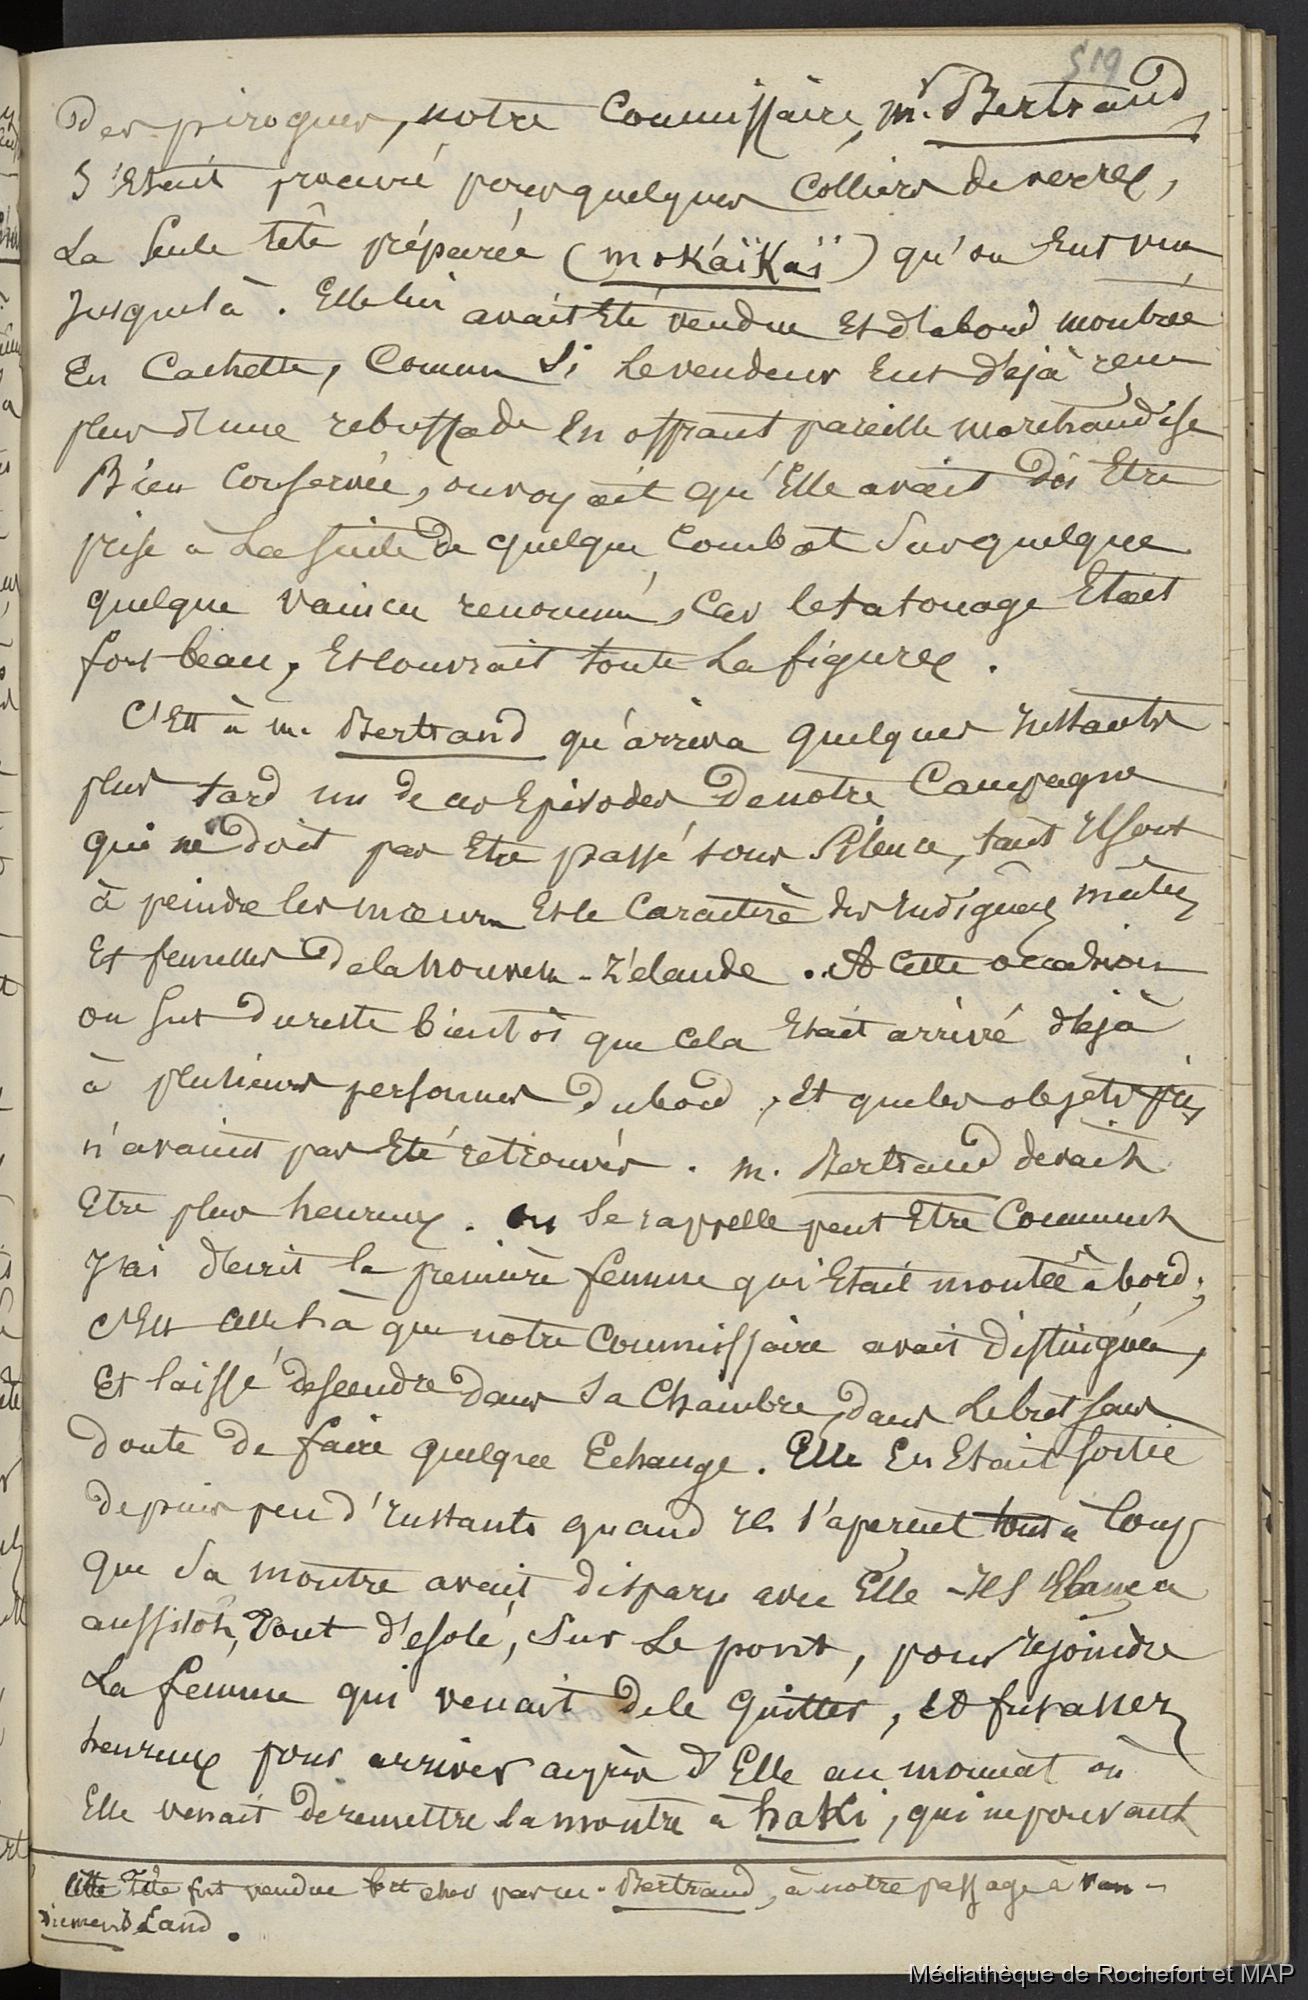 519
Des pirogues, notre Commissaire, mr. Bertrand,
S'Etait procuré pour quelques Colliers de verre,
La Seule tête préparée (mokáïkaï) qu'on Eut vue
Jusque là. Elle lui avait Eté vendue Et d'abord montrée
En Cachette, Comme Si le vendeur Eut déjà reçu
plus d'une rebuffade En offrant pareille marchandise
Bien Conservée, on voyait qu'Elle avait dû Etre
prise à La Suite de quelque Combat Sur quelque
quelque vaincu renommé, Car le tatouage Etait
fort beau, Et Couvrait toute La figure.
C'Est à m. Bertrand qu'arriva quelques Instants
plus tard un de ces Episodes De notre Campagne
qui ne doit pas Etre passé sous Silence, tant Il sert
à peindre les mœurs Et le Caractère des Indigènes mâles
Et femelles De la nouvelle-Zélande. A Cette occasion
on Sut du reste bientôt que Cela Etait arrivé déjà
à plusieurs personnes du bord, Et que les objets pris
n'avaient pas Eté retrouvés. m. Bertrand devait
Etre plus heureux. on Se rappelle peut Etre Comment
J'ai décrit la première femme qui Etait montée à bord;
C'Est Celle là que notre Commissaire avait distinguée,
Et laissé descendre dans Sa Chambre, dans Le but Sans
doute de faire quelque Echange. Elle En Etait Sortie
depuis peu d'Instants quand Il S'aperçut tout à Coup
que Sa montre avait disparu avec Elle - Il S'Elança
aussitôt, tout désolé, Sur Le pont, pour rejoindre
La femme qui venait de le quitter, Et fut assez
heureux pour arriver auprès d'Elle au moment où
Elle venait de remettre la montre à haki, qui ne pouvant
Cette Tête fut vendue fort cher par m. Bertrand, à notre passage à Van-
diemens Land.
Médiathèque de Rochefort et MAP